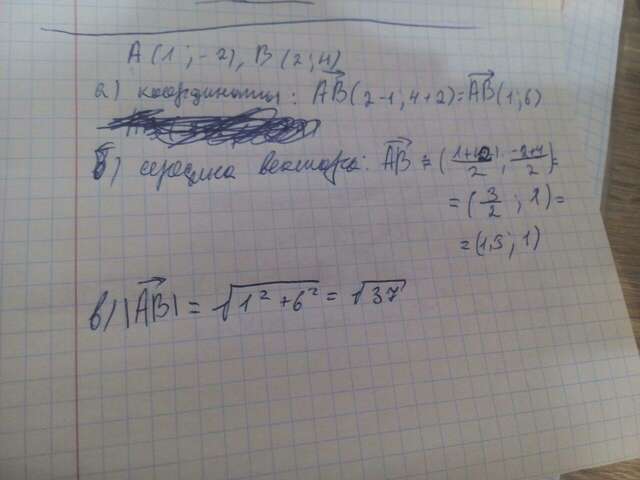 A(1; -2), B(2; 4)
а) координаты: AB(2-1; 4+2) = AB(1; 6)
б) середина вектора: AB = (1+2/2; -2+4/2) =
= (3/2; 1) =
= (1,5; 1)
в) |AB| = √1²+6² = √37